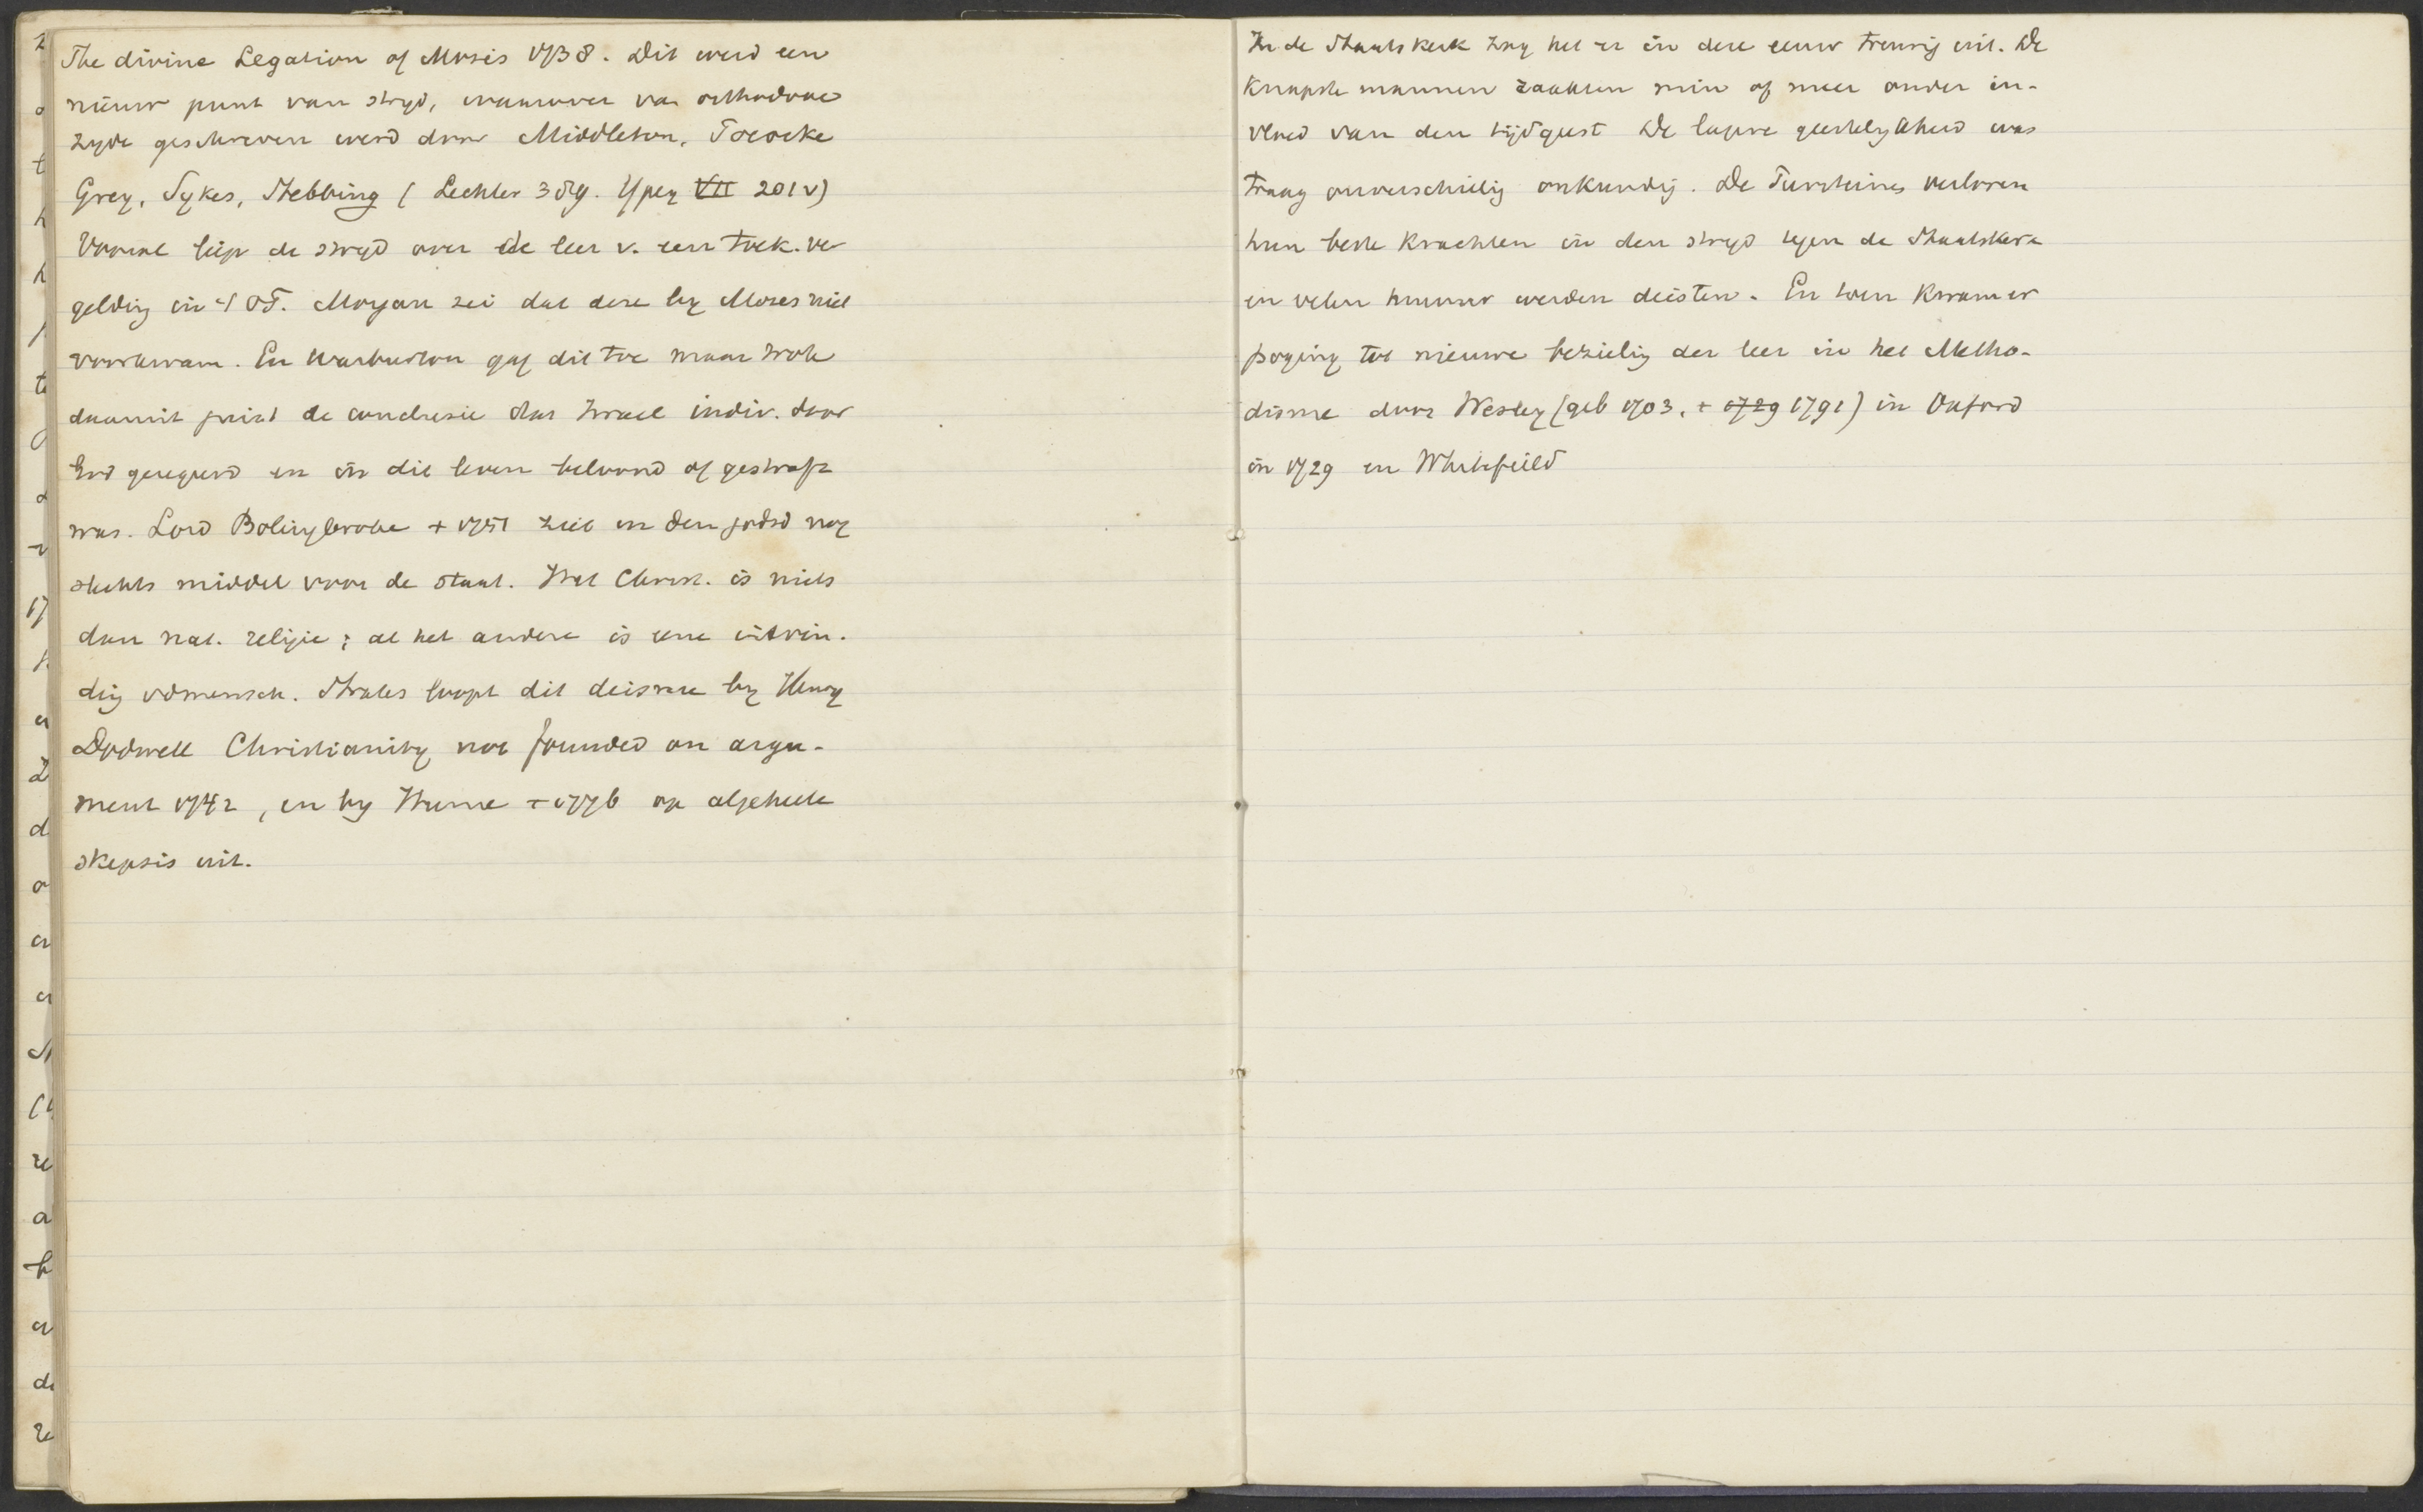 The divine Legation of Mosis 1738. Dit werd een
nieuw punt van stryd, waarover van orthodoxe
zyde geschreven werd door Middleton, Pococke
Grey, Sykes, Stebbing ( Lechler 389. Ypey VII 201 v)
Vooral liep de stryd over de leer v. een toek. ver
gelding in 't OT. Morgan zei dat deze by Mozes niet
voorkwam. En Warburton gaf dit toe maar trok
daaruit juist de conclusie dat Israel indiv. door
God geregeerd en in dit leven beloond of gestraft
was. Lord Bolingbroke + 1751 ziet in den godsd nog
slechts middel voor de staat. Het Christ. is niets
dan nat. religie; al het andere is eene uitvin-
dig vd mensch. Straks loopt dit deisme by Henry
Dodwell Christianity not founded on argu-
ment 1742, en by Hume + 1776 op algeheele
skepsis uit.
In de Staatskerk zag het er in deze eeuw treurig uit. De
knapste mannen raakten min of meer onder in-
vloed van den tijdgeest De lagere geestelykheid was
traag onverschillig onkundig. De Puriteines verloren
hun beste krachten in den stryd tegen de Staatskerk
en velen hunner werden deisten. En toen kwam er
poging tot nieuwe bezielig der leer in het Metho-
disme door Wesley (geb 1703, + 1729 1791) in Oxford
in 1729 en Whitefield